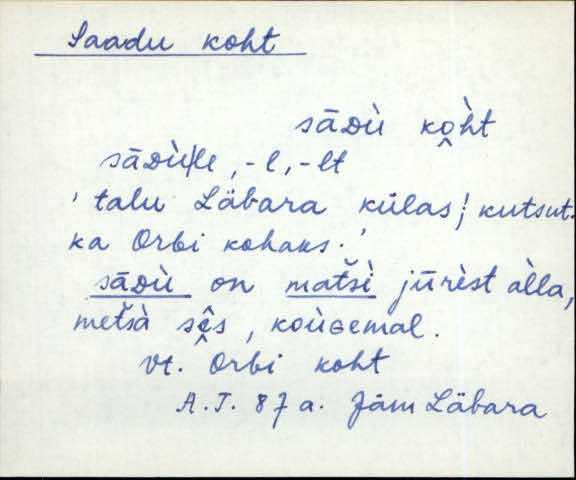 Saadu koht
sāDù ko̭h̀t
sāDù|le, -l, -lt
'talu Läbara külas; kutsut.
ka Orbi kohaks.'
sāDù on matšì jūrèst àlla,
metšà sḙ̂s, koùGemal.
vt. Orbi koht
A.T. 87 a. Jäm Läbara